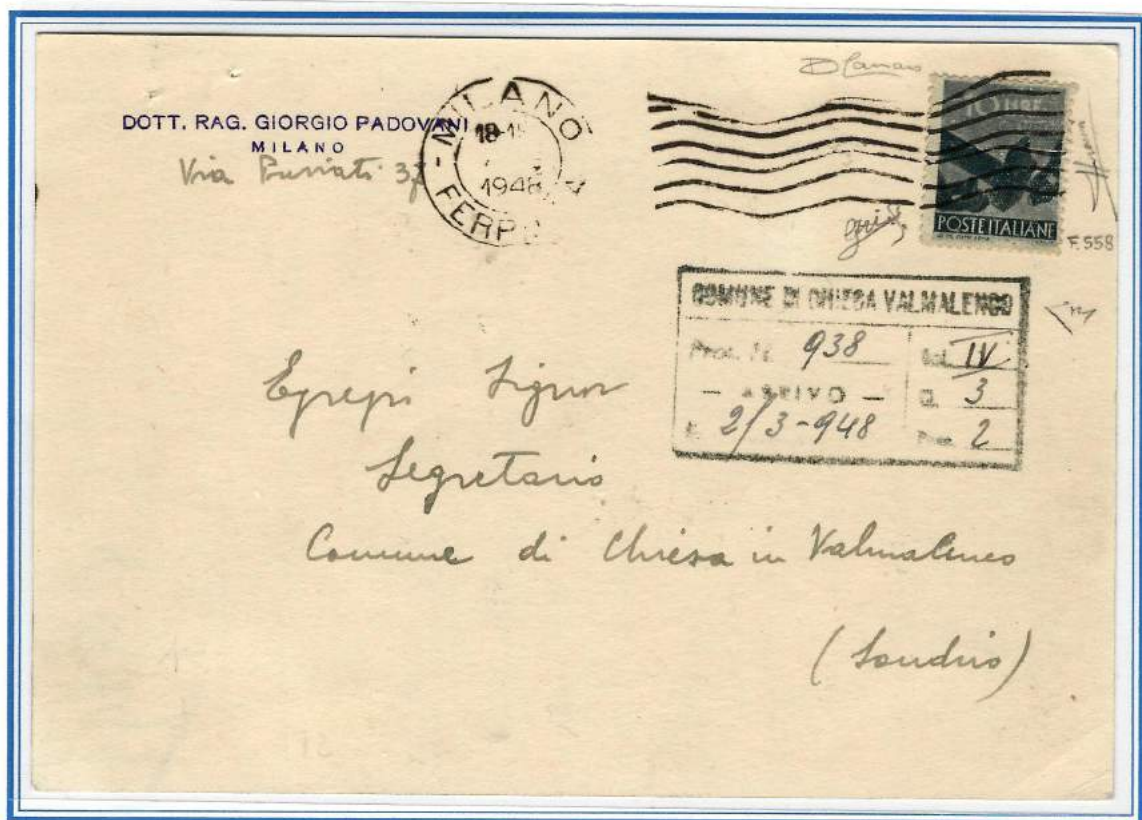 DOTT. RAG. GIORGIO PADOVANI
MILANO
Via
MILANO
18-19
1948
FERR
10 LIRE
POSTE ITALIANE
F. 558
COMUNE DI CHIESA VALMALENCO
Prot. N. 938
IV
— ARRIVO —
Cl. 3
2/3-948
2
Egregi Signor
Segretario
Comune di Chiesa in Valmalenco
(Sondrio)